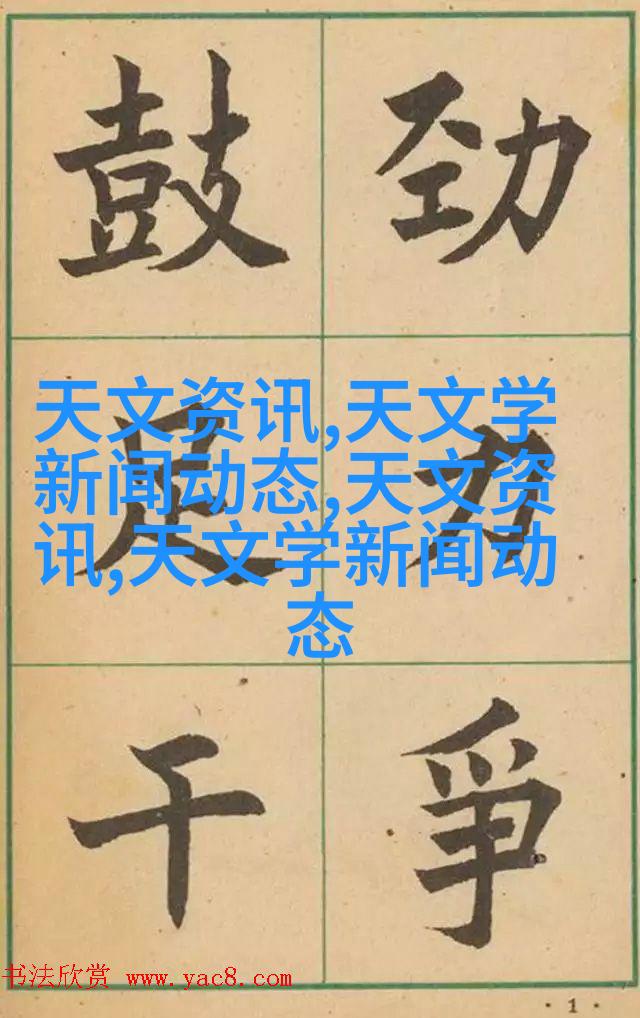 鼓足干
劲力爭
天文资讯,天文学
新闻动态,天文资
讯,天文学新闻动
态
书法欣赏 www.yac8.com
· 1 ·